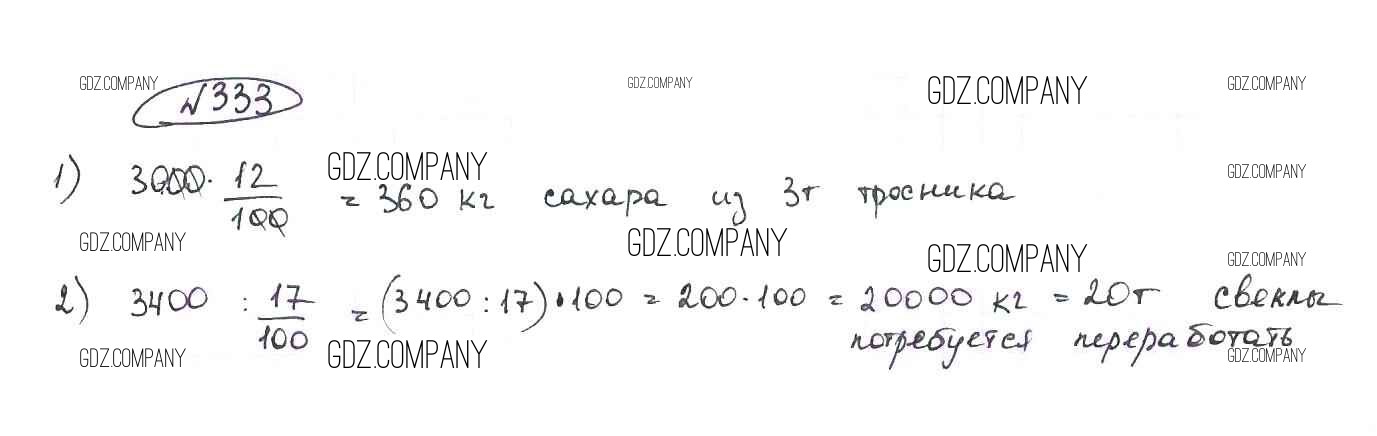 GDZ.COMPANY GDZ.COMPANY GDZ.COMPANY GDZ.COMPANY
№333
GDZ.COMPANY GDZ.COMPANY
1) 3000 · 12/100 = 360 кг сахара из 3т тросника
GDZ.COMPANY GDZ.COMPANY GDZ.COMPANY GDZ.COMPANY
2) 3400 : 17/100 = (3400 : 17) · 100 = 200 · 100 = 20000 кг = 20т свеклы
потребуется переработать
GDZ.COMPANY GDZ.COMPANY GDZ.COMPANY